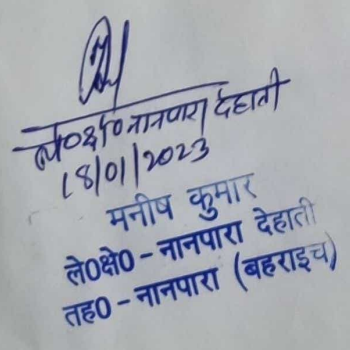 ले०क्षे० नानपारा देहाती
18/01/2023
मनीष कुमार
ले0क्षे0 - नानपारा देहाती
तह0 - नानपारा (बहराइच)